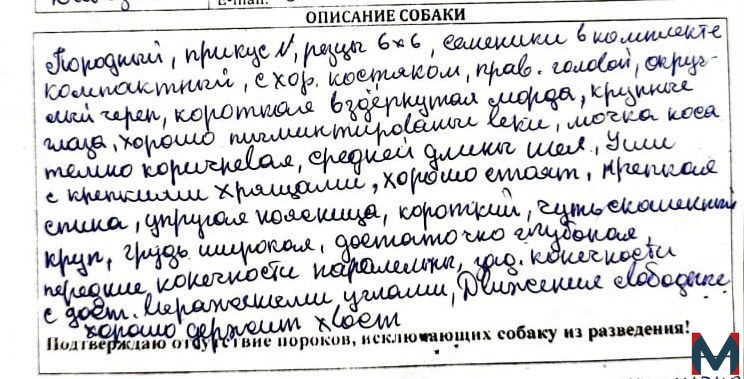 E-mail:
ОПИСАНИЕ СОБАКИ
Породный, прикус N, резцы 6х6, семеники в комплекте
компактный, с хор. костяком, прав. головой, округ-
лый череп, короткая вздёрнутая морда, крупные
глаза, хорошо пигминтированые веки, мочка носа
темно коричневая, средней длины шея, Уши
с крепкими хрящами, хорошо стоят, крепкая
спина, упругая поясница, короткий, чуть скошенный
круп, грудь широкая, достаточно глубокая,
передние конечности паралельны, зад. конечности
с дост. выраженными углами, Движения свободные
хорошо держит хвост
Подтверждаю отсутствие пороков, исключающих собаку из разведения!
М